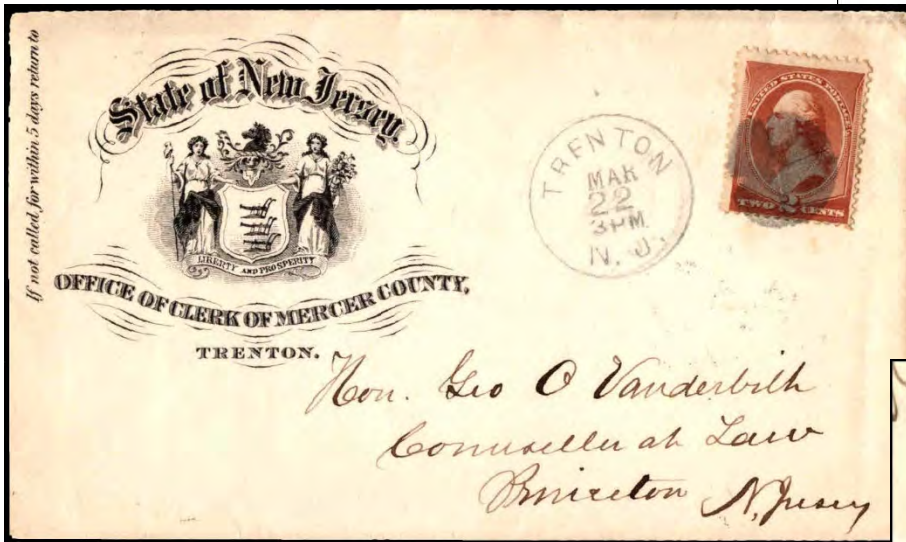 If not called for within 5 days return to
State of New Jersey,
LIBERTY AND PROSPERITY
OFFICE OF CLERK OF MERCER COUNTY,
TRENTON.
TRENTON
MAR
22
3PM
N. J.
UNITED STATES POSTAGE
TWO 2 CENTS
Hon. Geo O Vanderbilt
Counseller at Law
Princeton N. Jersey